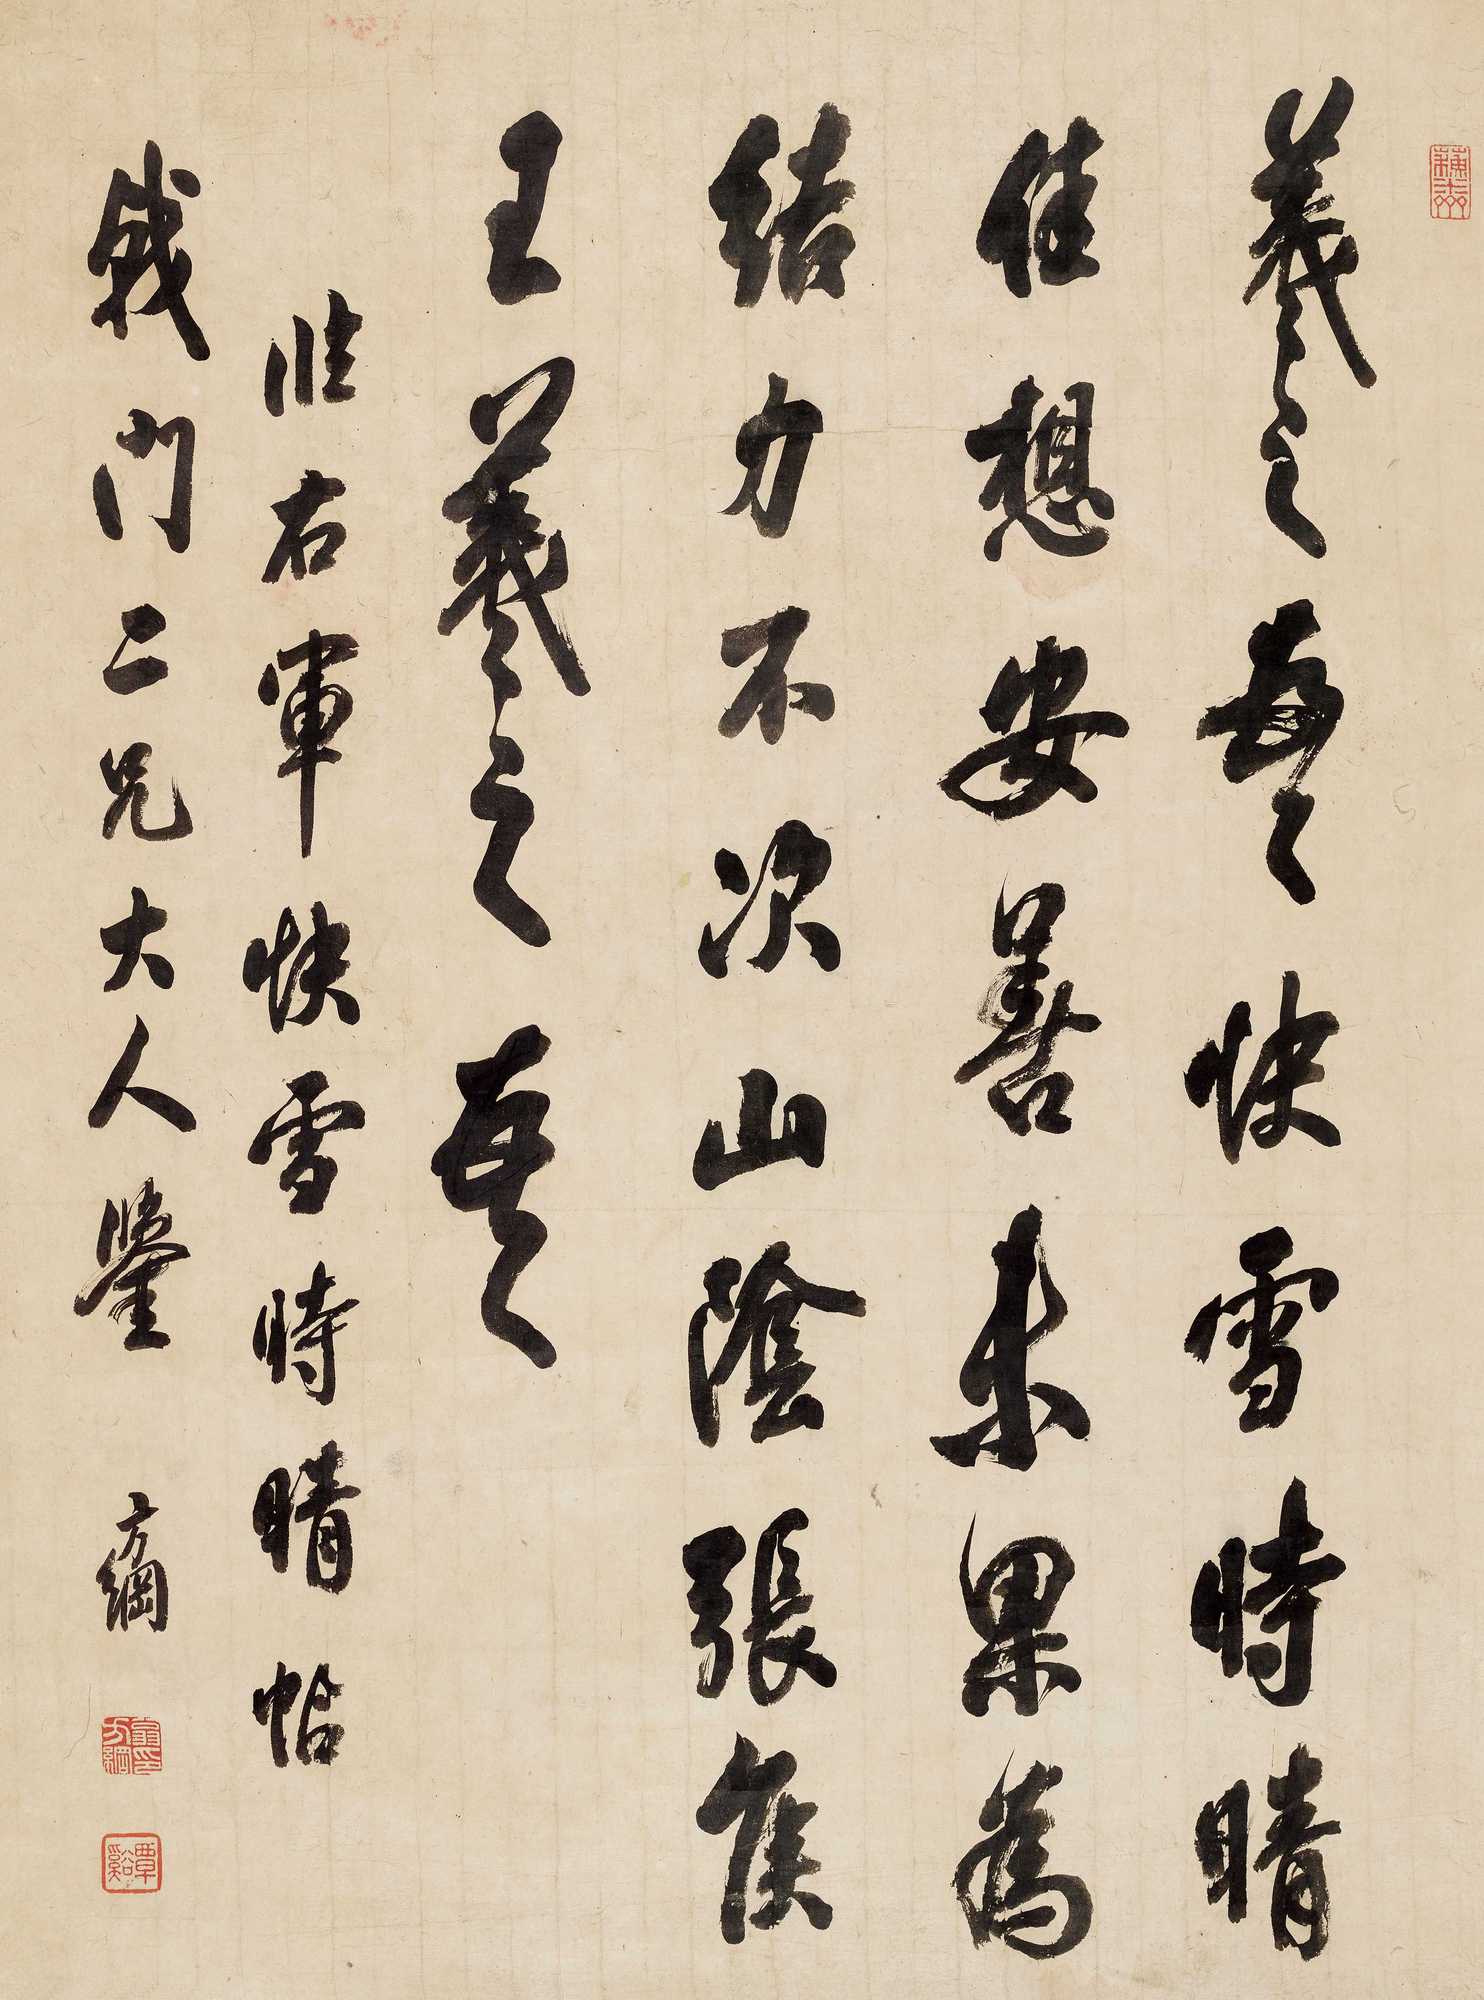 蘇齋
羲之頓首快雪時晴
佳想安善未果為
結力不次山陰張侯
王羲之頓首
臨右軍快雪時晴帖
戟門二兄大人鑒 方綱
翁方綱印
覃谿